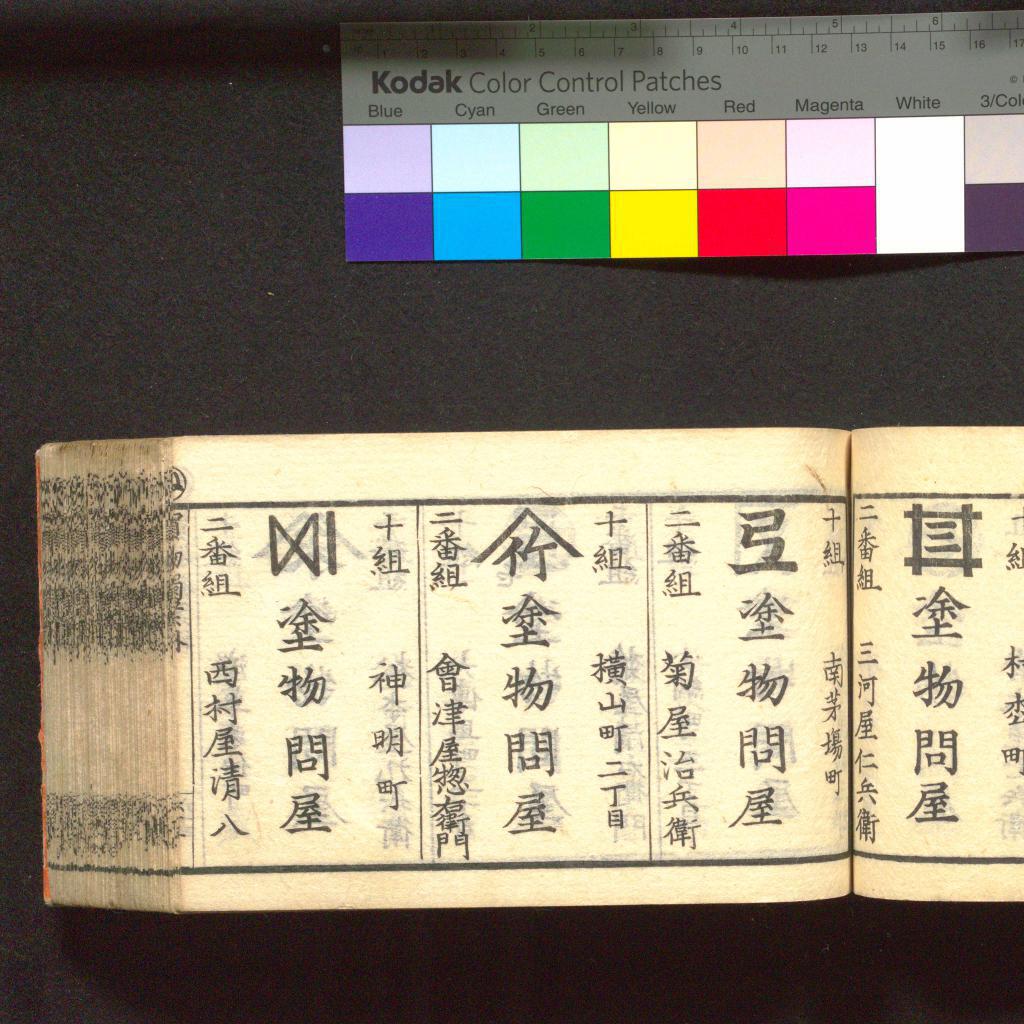 Kodak Color Control Patches
Blue Cyan Green Yellow Red Magenta White 3/Colo
1 2 3 4 5 6
1 2 3 4 5 6 7 8 9 10 11 12 13 14 15 16 17
十組
塗物問屋
二番組 三河屋仁兵衛
十組 南茅場町
塗物問屋
二番組 菊屋治兵衛
十組 横山町二丁目
竹 塗物問屋
二番組 會津屋惣衛門
十組 神明町
塗物問屋
二番組 西村屋清八